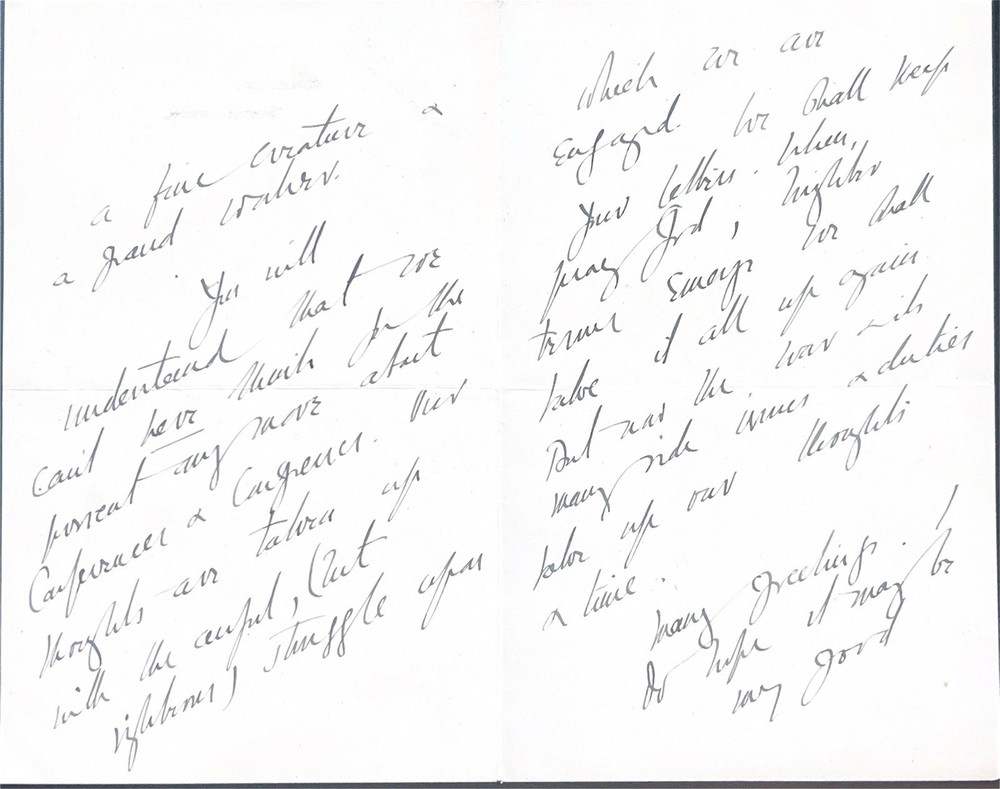 a fine creature &
a grand walker.
You will
understand that we
can't have much for the
present any more about
Conferences & Congresses. Our
thoughts are taken up
with the awful, (but
righteous) struggle upon
which we are
engaged. We shall keep
your letters. When,
pray God, brighter
times emerge we shall
take it all up again.
But now the war & its
many side issues & duties
take up our thoughts
& time.
Many greetings. I
do hope it may be
very good